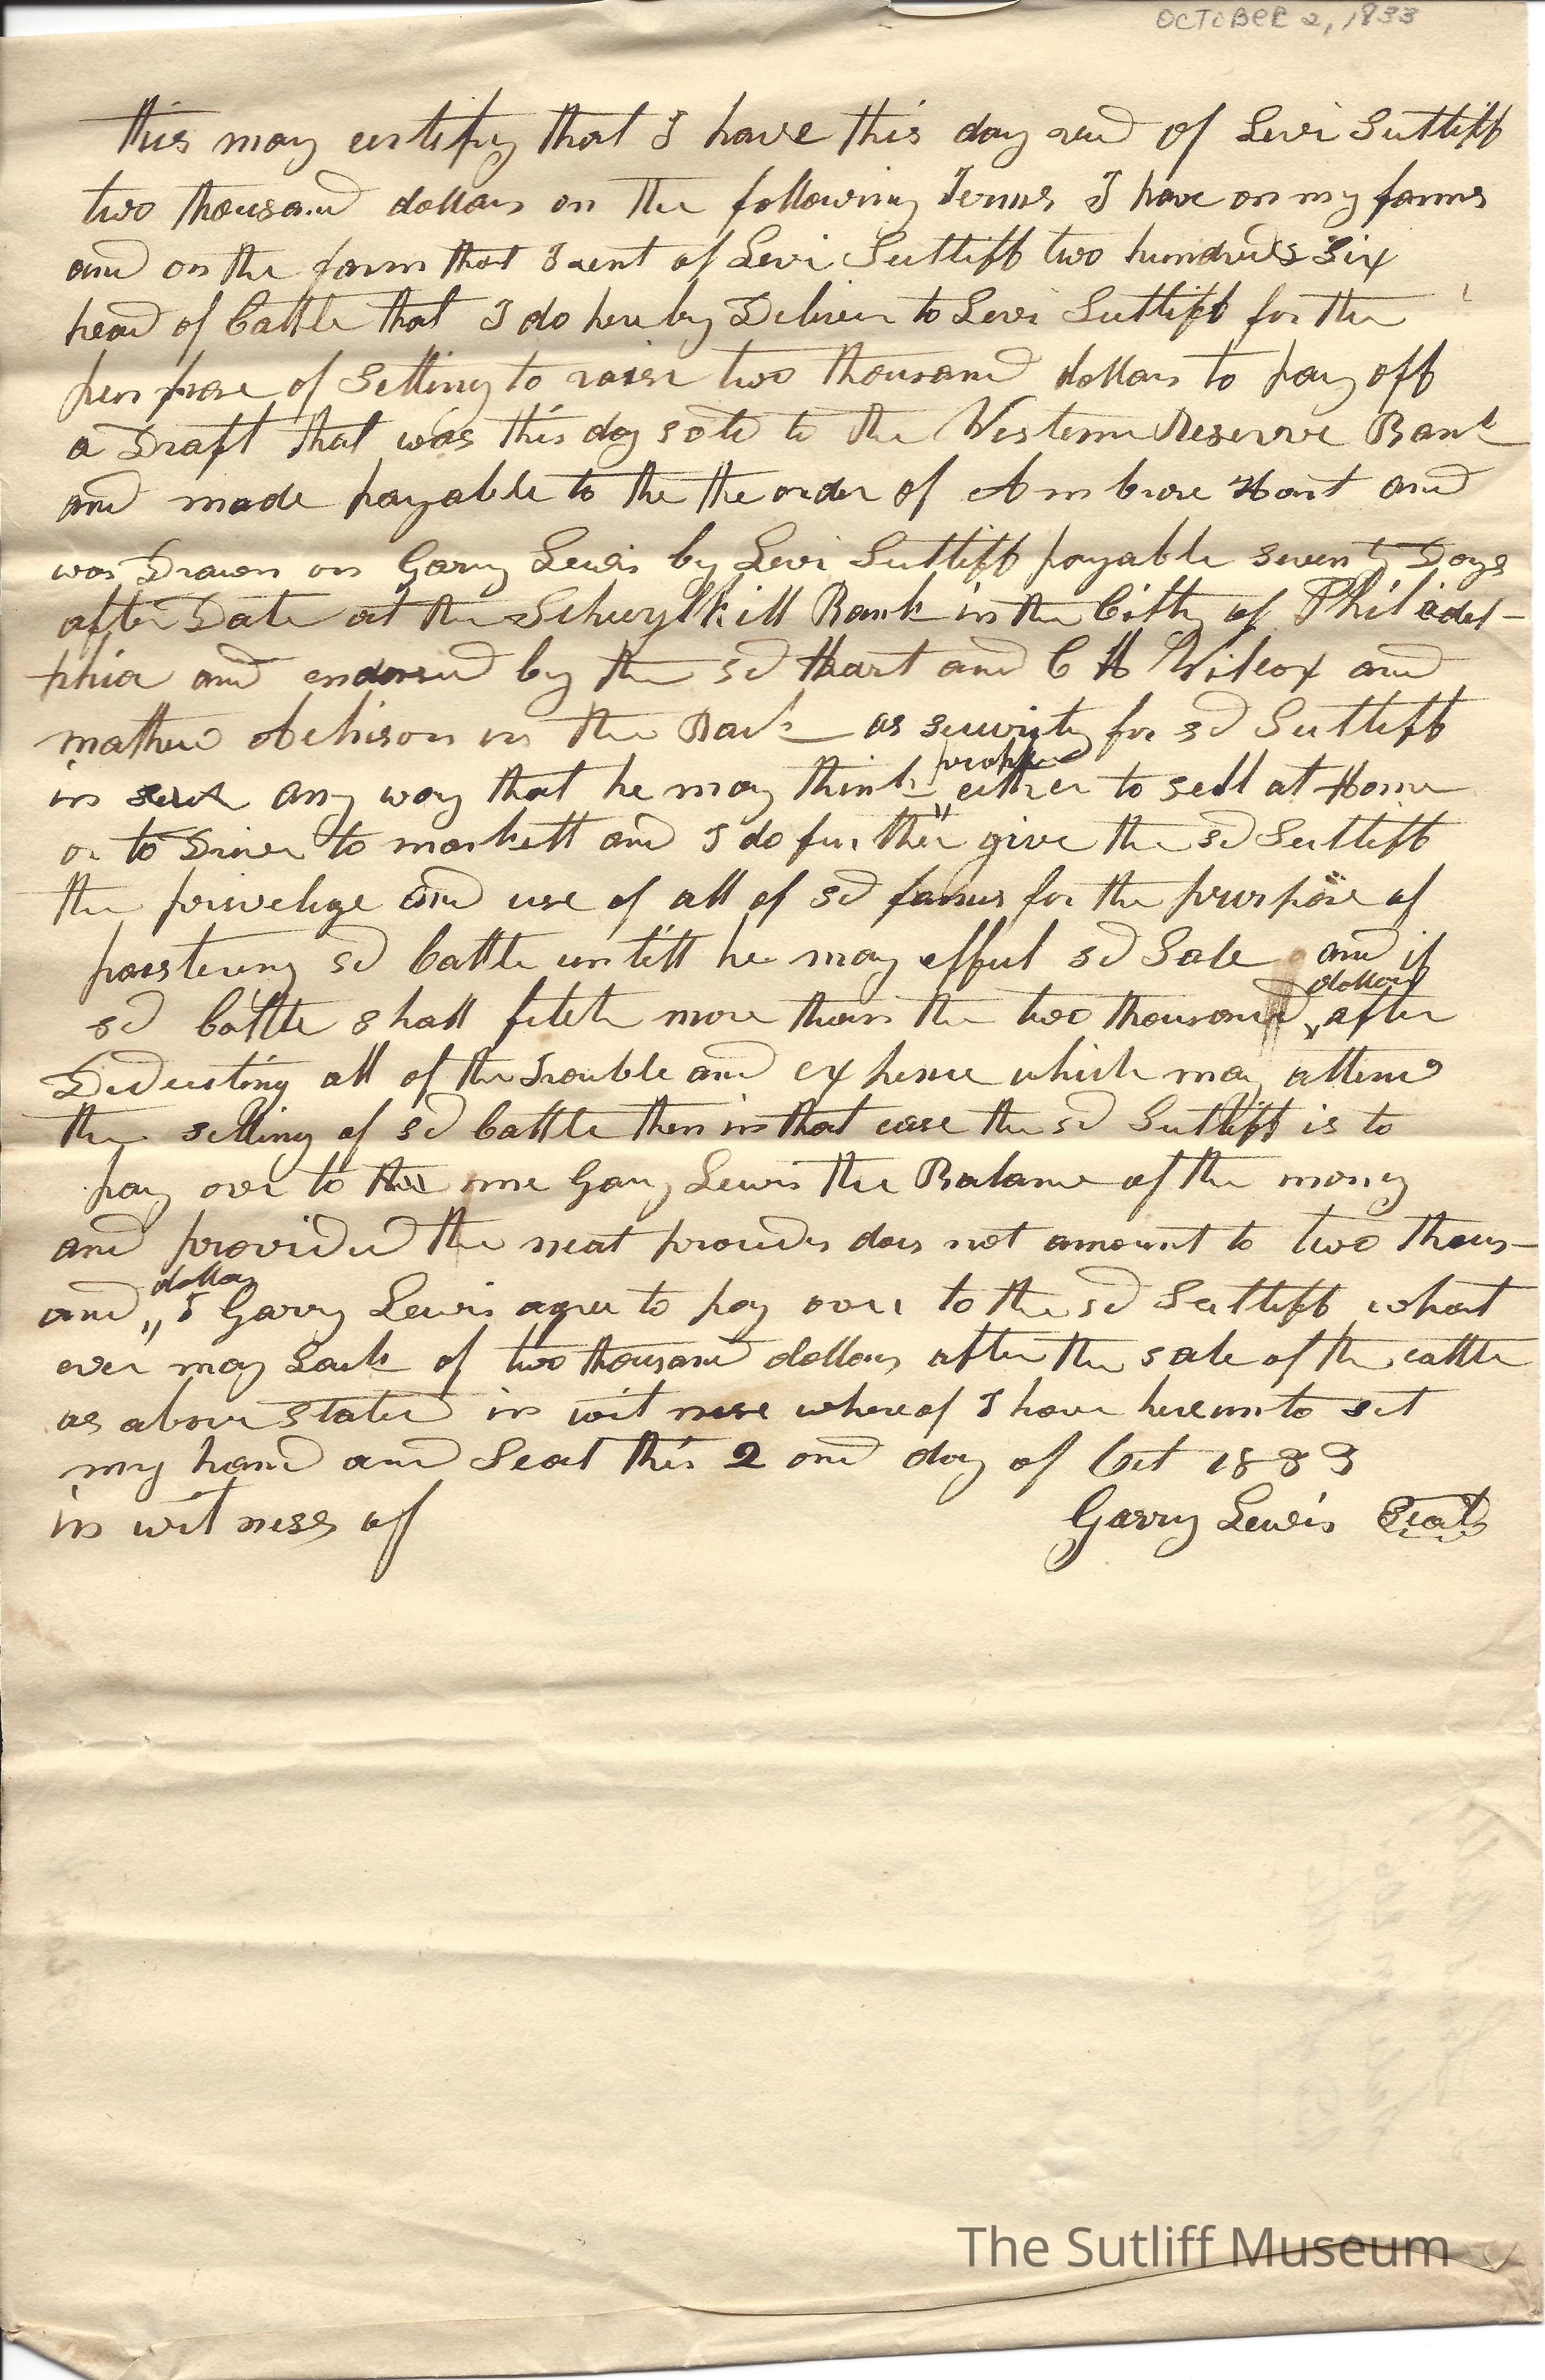 OCTOBER 2, 1833
this may certify that I have this day recd of Levi Sutliff
two thousand dollars on the following Terms I have on my farms
and on the farm that I rent of Levi Sutliff two hundred & Six
head of Cattle that I do hereby Deliver to Levi Sutliff for the
purpose of Selling to raise two thousand dollars to pay off
a Draft that was this day sold to the Western Reserve Bank
and made payable to the the order of Ambrose Hart and
was Drawn on Garry Lewis by Levi Sutliff payable seventy Days
after Date at the Schuylkill Bank in the Citty of Philadel-
phia and endorsed by the sd Hart and C H Wilcox and
mathew Achison in the Back as security for sd Sutliff
proper
in any way that he may think " either to sell at Home
or to Driver to markett and I do further give the sd Sutliff
the privelige and use of all of sd farms for the purpose of
pastering sd Cattle untill he may effect sd Sale and if
dollars
sd Cattle shall fetch more than the two thousand after
Deducting all of the Trouble and expense which may attend
the selling of sd Cattle then in that case the sd Sutliff is to
pay over to me Gary Lewis the Balance of the money
and provided the neat proceeds does not amount to two thous-
dollars
and " I Garry Lewis agree to pay over to the sd Sutliff what
ever may Lack of two thousand dollars after the sale of the cattle
as above Stated in witness whereof I have hereunto set
my hand and Seal this 2 ond day of Oct 1833
in witness of Garry Lewis Seal
The Sutliff Museum